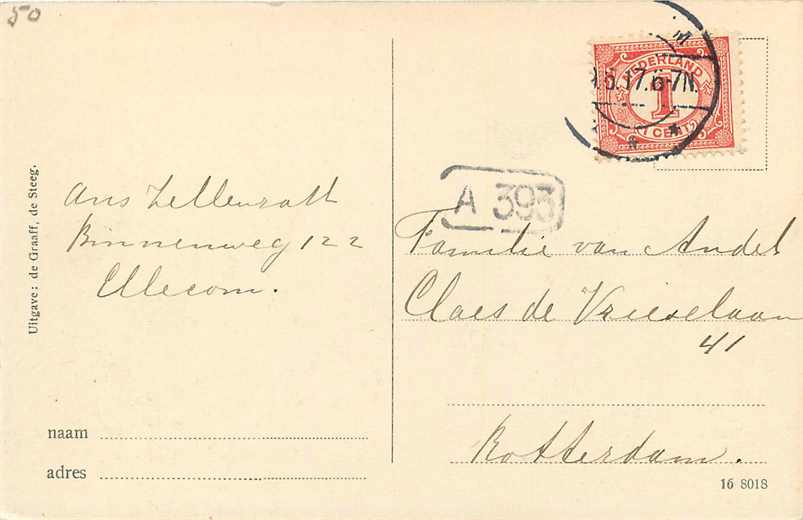 50
NEDERLAND
1
1 CENT
.5.17.6-7N.
A 393
Uitgave: de Graaff, de Steeg.
Ans Zellenratt
Binnenweg 122
Ellecom.
Familie van Andel
Claes de Vrieselaan
41
Rotterdam.
naam
adres
16 8018